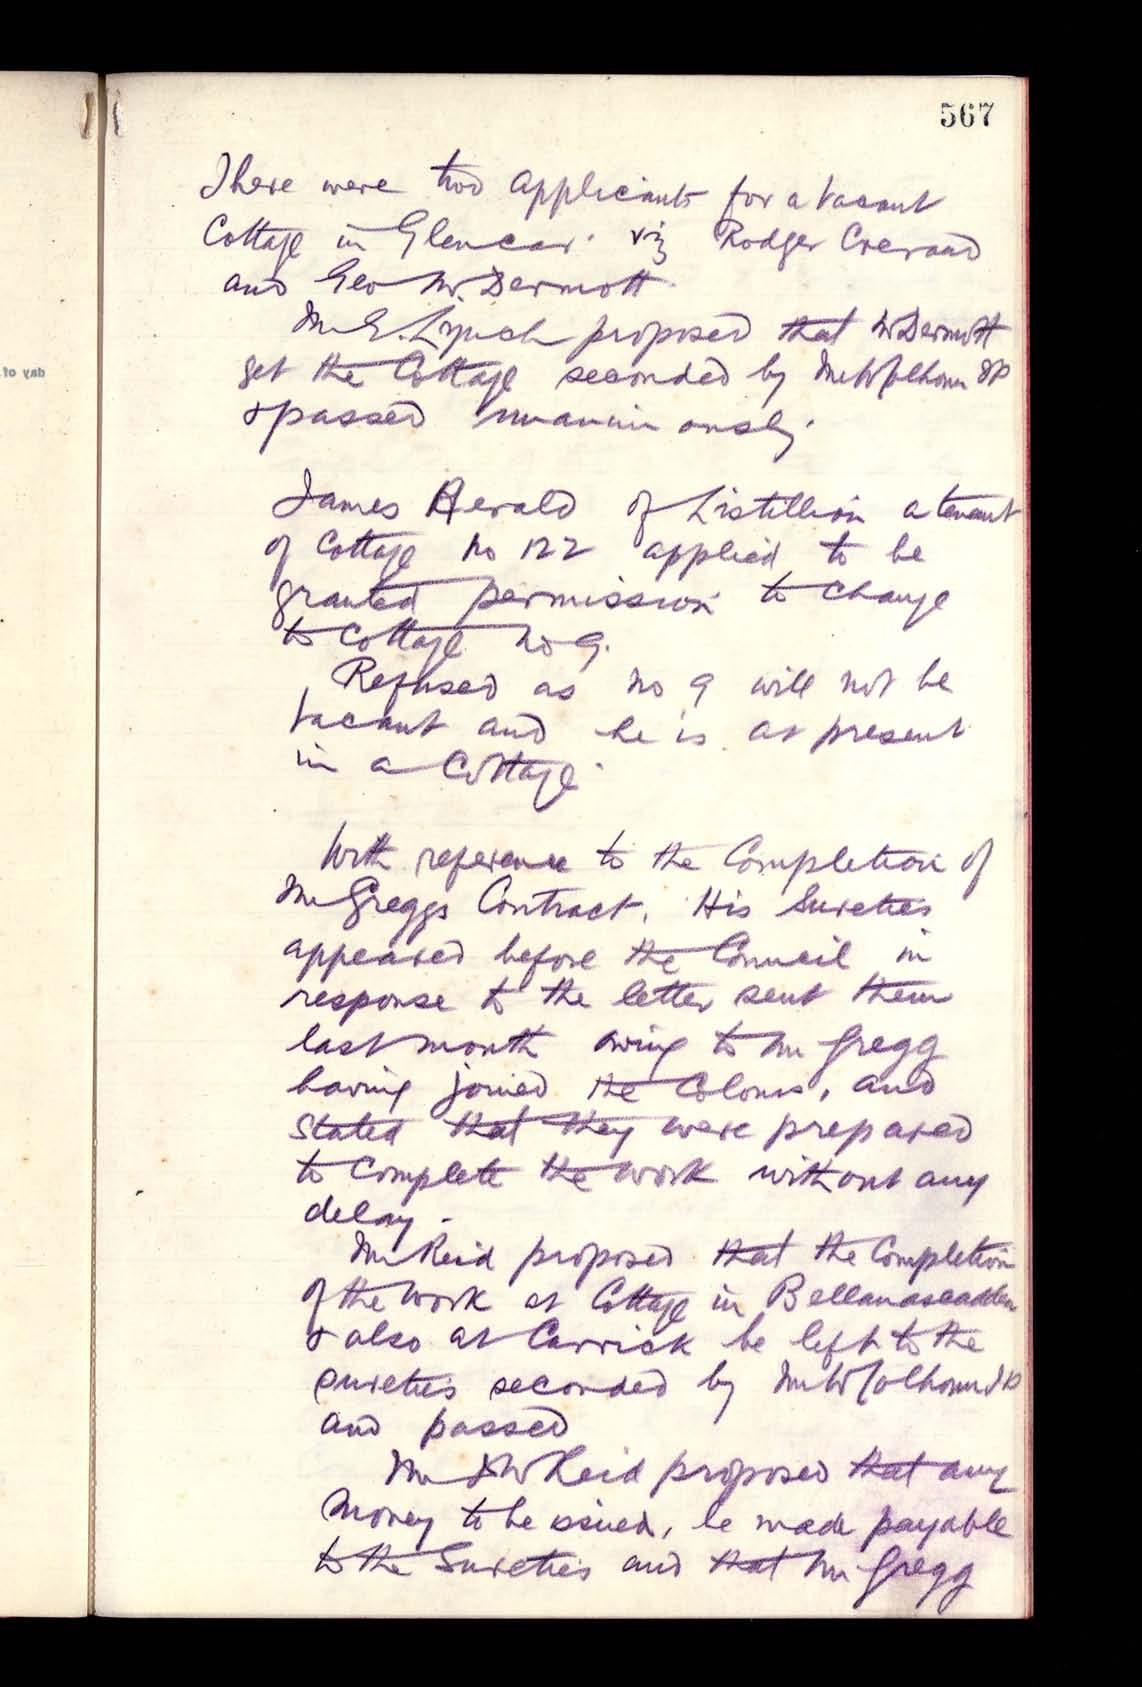 567
There were two applicants for a vacant
Cottage in Glencar. viz Rodger Coeraad
and Geo McDermott.
Mr E. Lynch proposed that McDermott
get the Cottage seconded by Mr W Colhoun JP
& passed unanimously.
James Herald of Listillion a tenant
of Cottage No 122 applied to be
granted permission to change
to Cottage No 9.
Refused as No 9 will not be
vacant and he is at present
in a Cottage.
With reference to the Completion of
Mr Greggs Contract. His Sureties
appeared before the Council in
response to the letter sent them
last month owing to Mr Gregg
having joined the Colours, and
stated that they were prepared
to complete the work without any
delay.
Mr Reid proposed that the Completion
of the work at Cottage in Bellanascadden
& also at Carrick be left to the
sureties seconded by Mr W Colhoun JP
and passed
Mr D W Reid proposed that any
Money to be issued, be made payable
to the Sureties and that Mr Gregg
day of